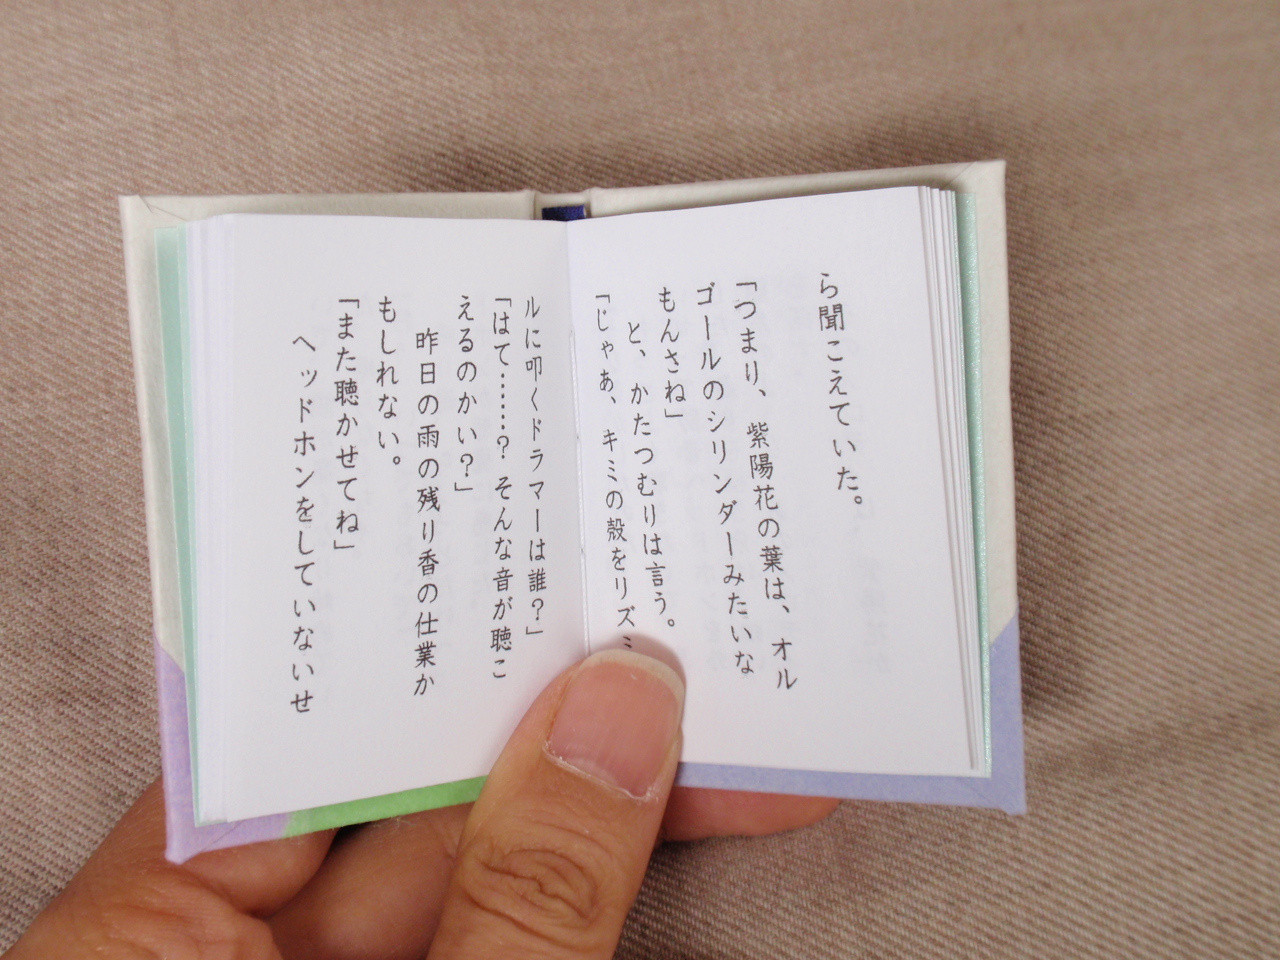 ら聞こえていた。
「つまり、紫陽花の葉は、オル
ゴールのシリンダーみたいな
もんさね」
と、かたつむりは言う。
「じゃぁ、キミの殻をリズミ
ルに叩くドラマーは誰?」
「はて……? そんな音が聴こ
えるのかい?」
昨日の雨の残り香の仕業か
もしれない。
「また聴かせてね」
ヘッドホンをしていないせ